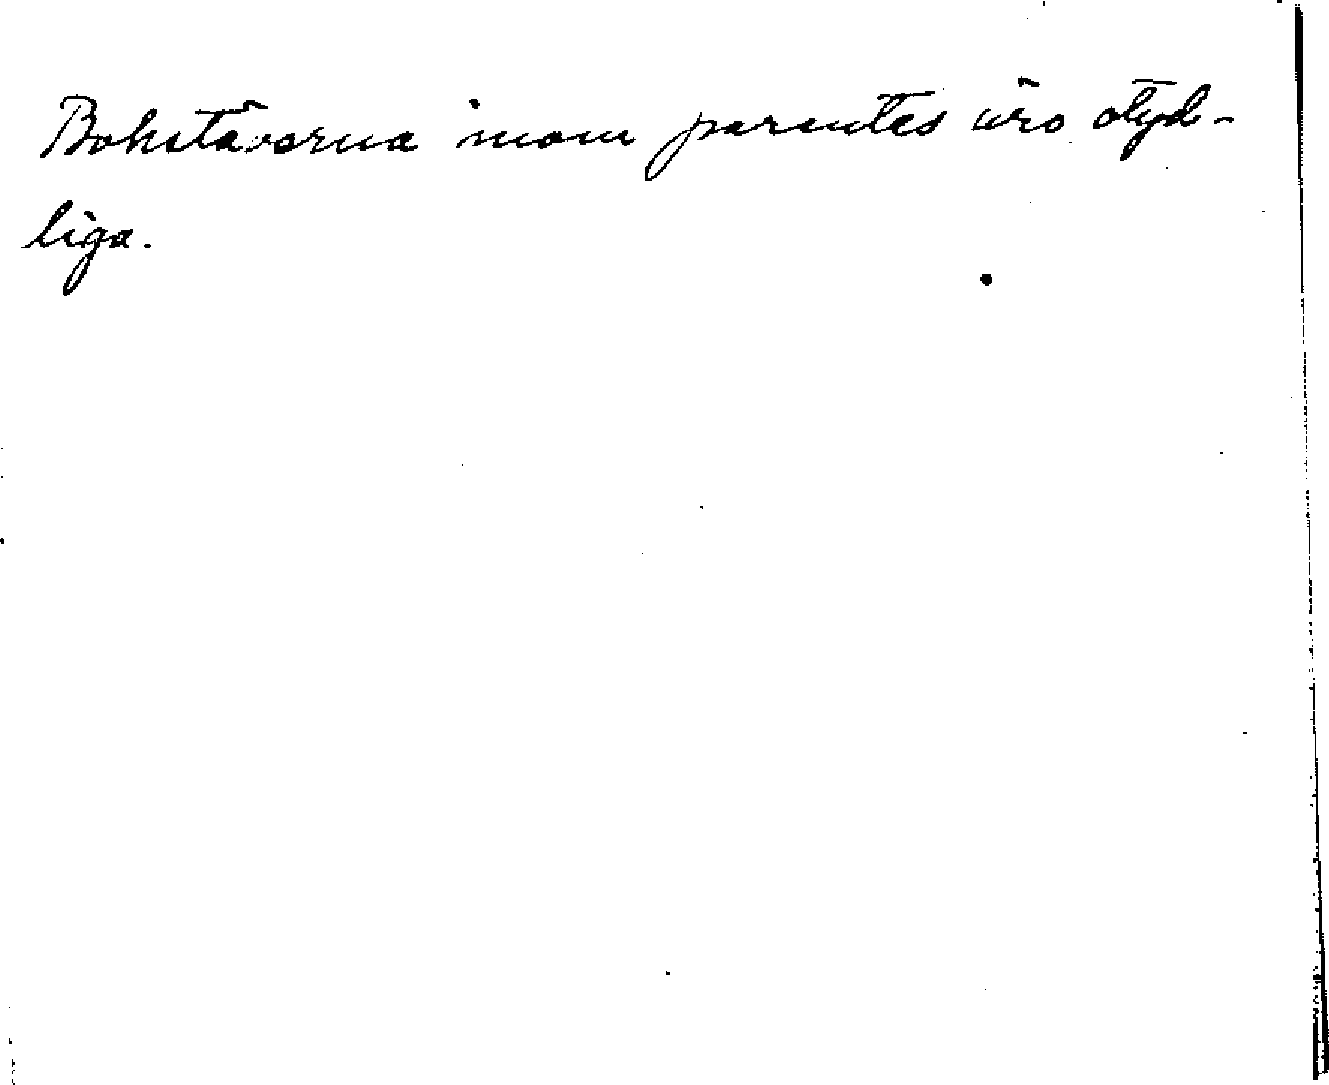 Bokstäverna inom parentes äro otyd-
liga.